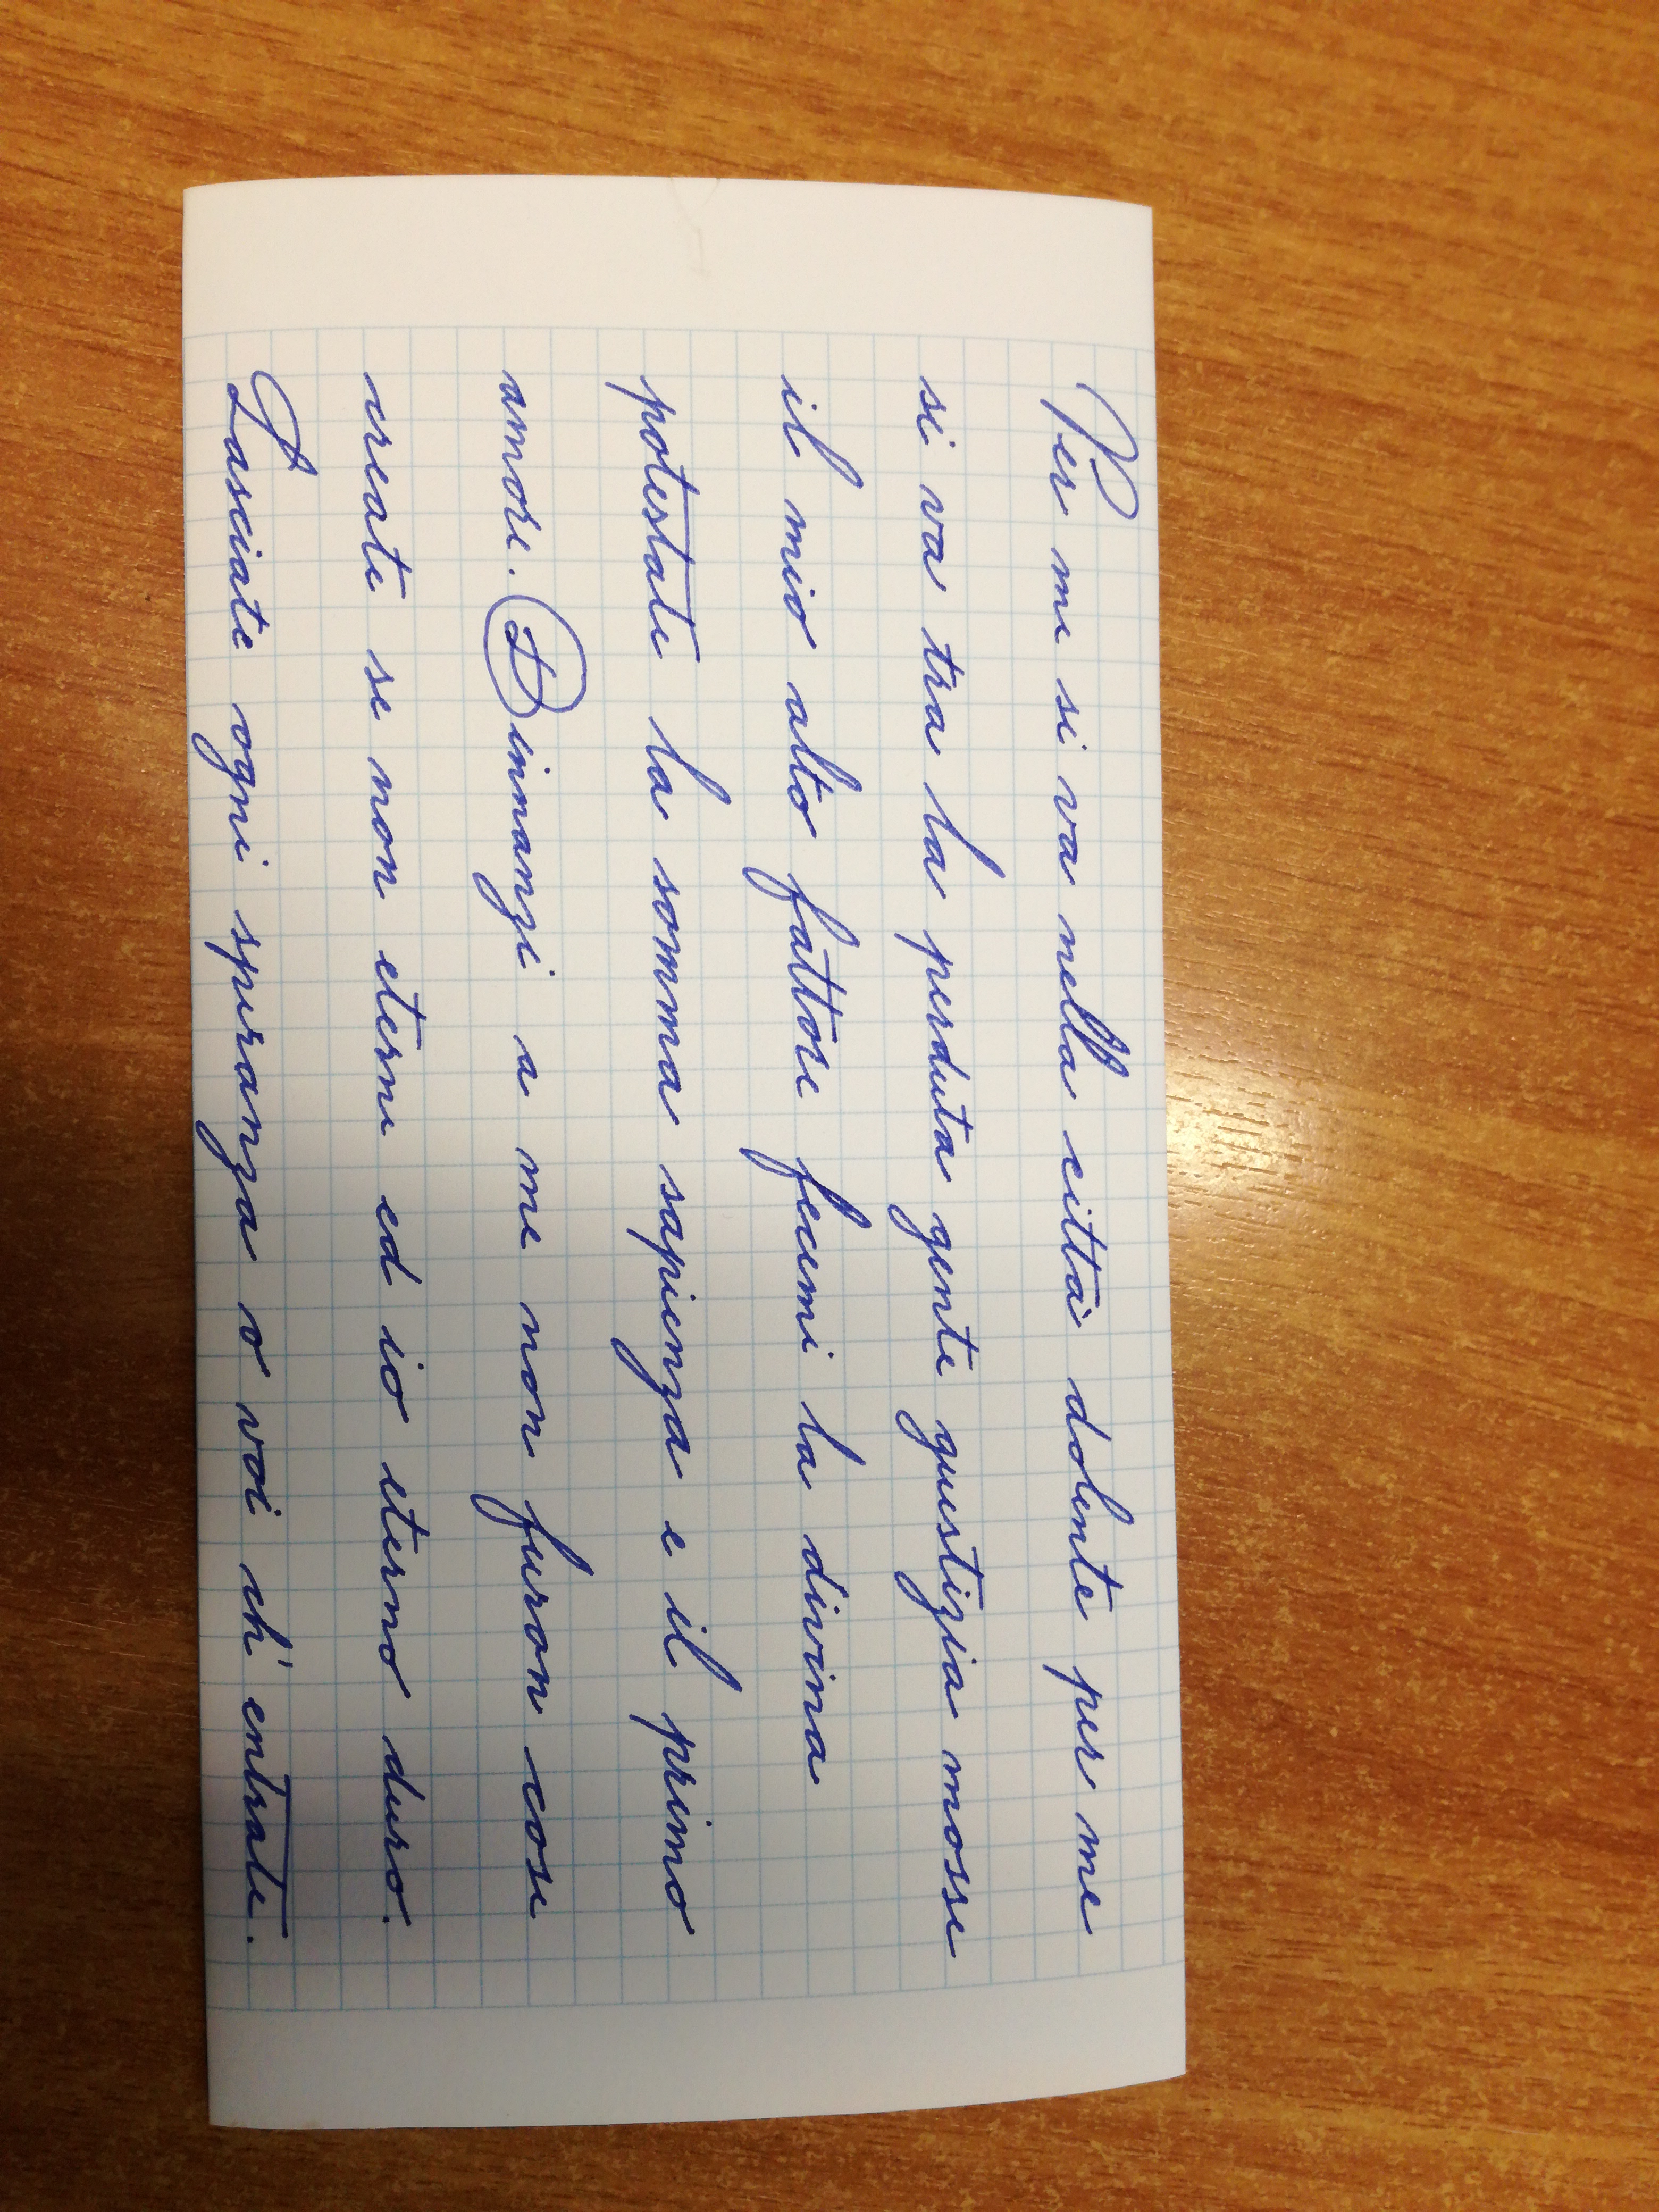 Per me si va nella città dolente per me
si va tra la perduta gente giustizia mosse
il mio alto fattore fecemi la divina
potestate la somma sapienza e il primo
amore. Dinnanzi a me non furon cose
create se non eterne ed io eterno duro.
Lasciate ogni speranza o voi ch'entrate.